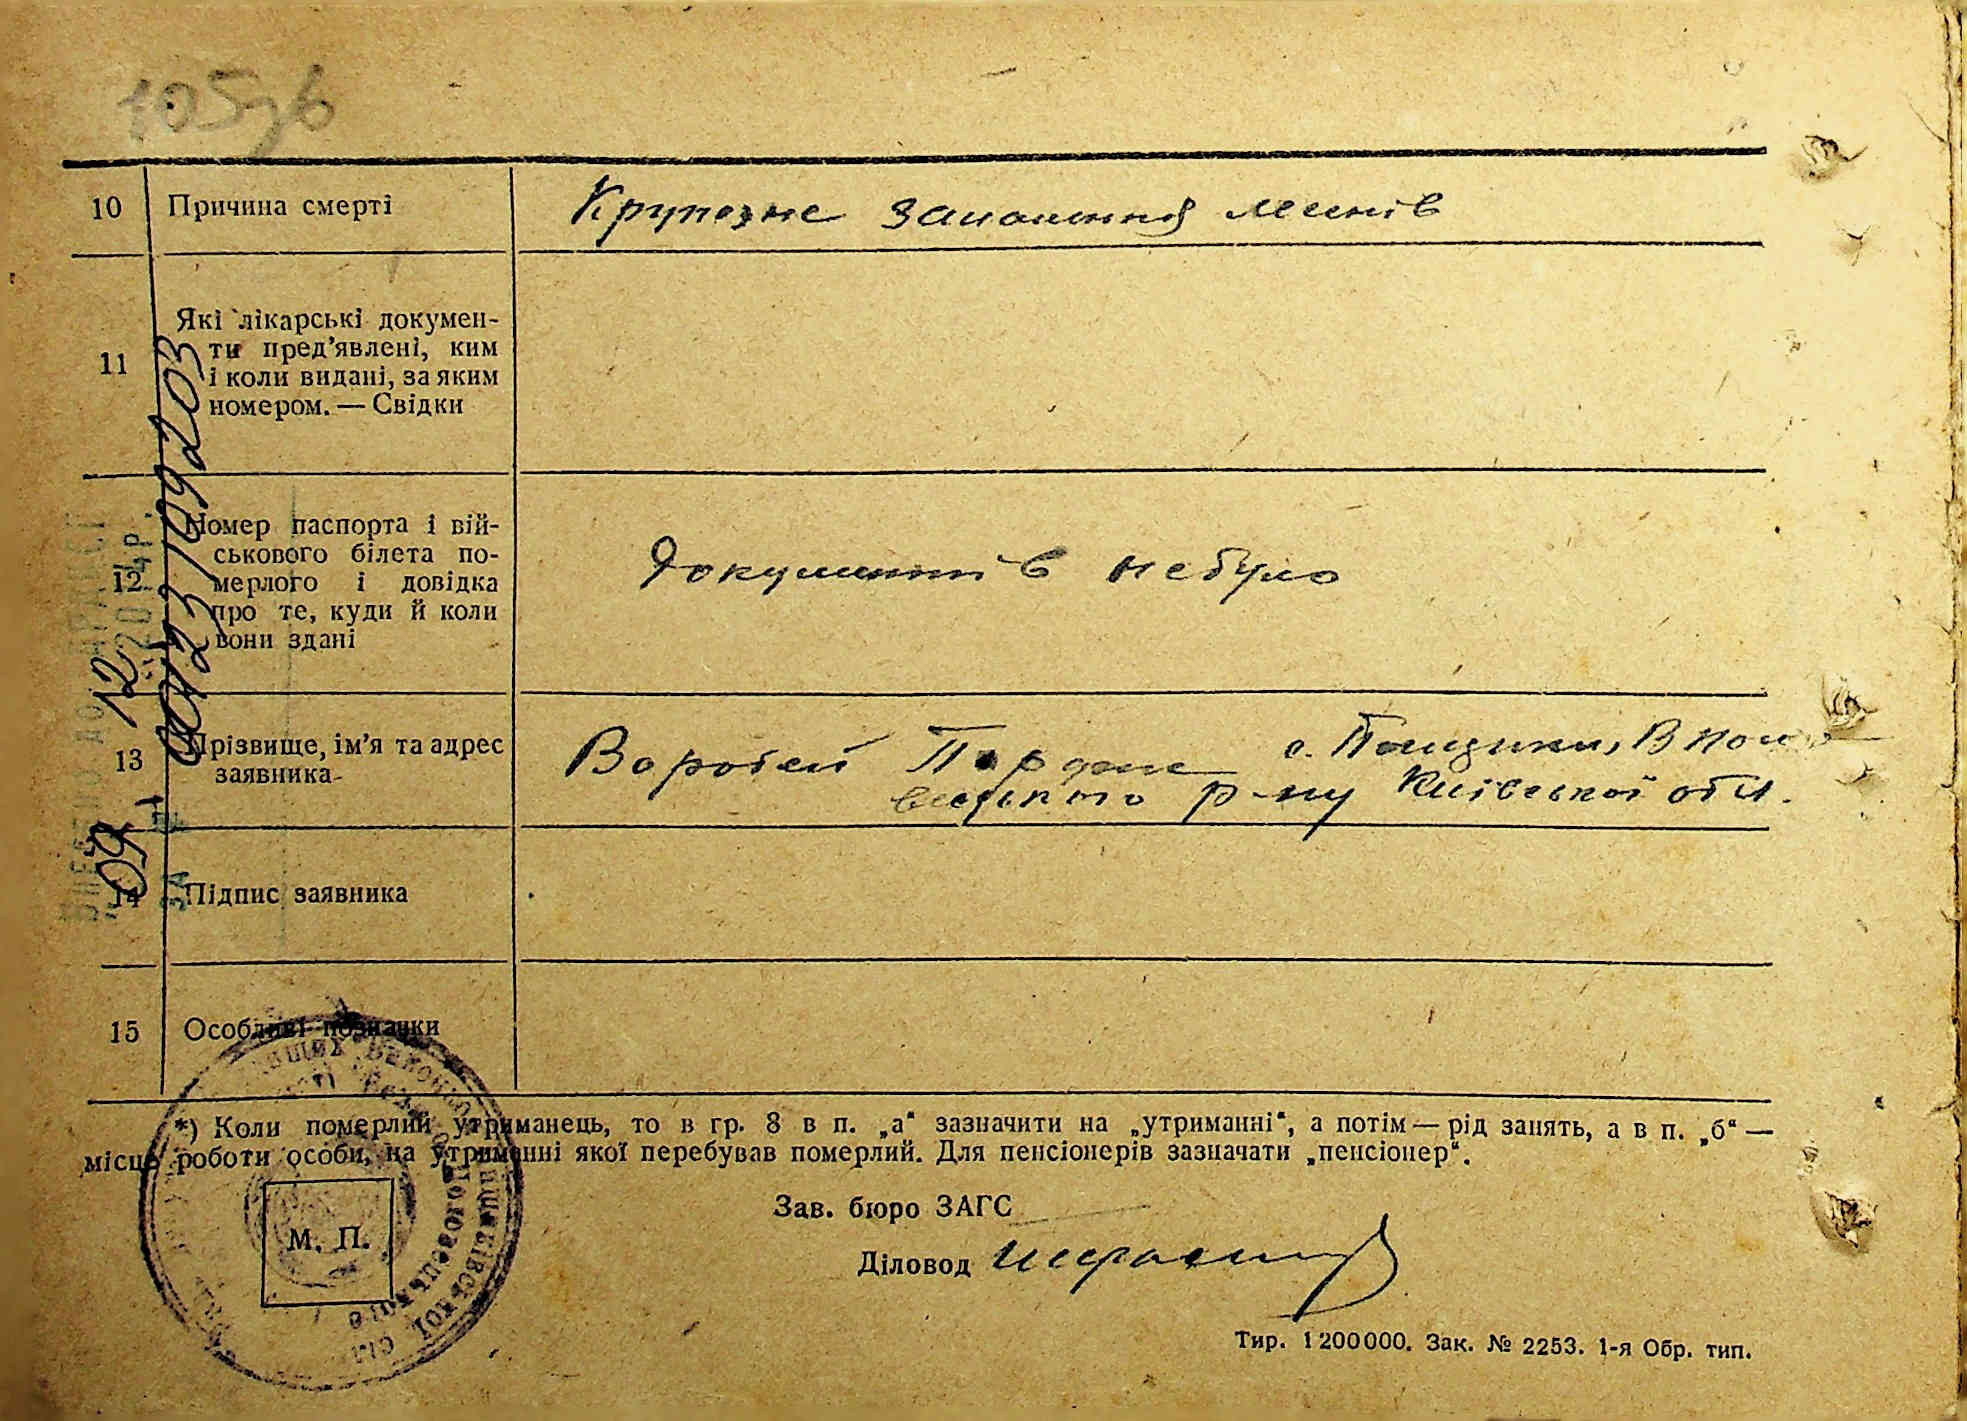 105
10 Причина смерті Крупозне запалення легенів
11 Які лікарські докумен-
ти пред’явлені, ким
і коли видані, за яким
номером. — Свідки
12 Номер паспорта і вій-
ськового білета по-
мерлого і довідка
про те, куди й коли
вони здані
Документів не було
13 Прізвище, ім’я та адрес
заявника
Воробей
р-ну Київської обл.
14 Підпис заявника
15 Особливі позначки
*) Коли померлий утриманець, то в гр. 8 в п. „а“ зазначити на „утриманні“, а потім — рід занять, а в п. „б“ —
місце роботи особи, на утриманні якої перебував померлий. Для пенсіонерів зазначати „пенсіонер“.
М. П.
Зав. бюро ЗАГС
Діловод
Тир. 1200000. Зак. № 2253. 1-я Обр. тип.